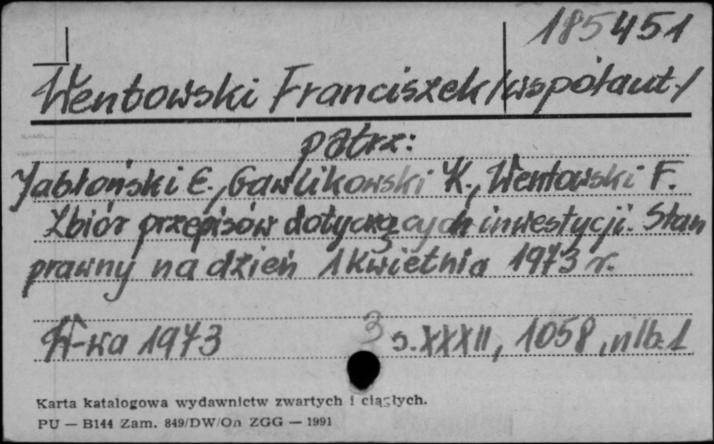 185451
Wentowski Franciszek /współaut./
patrz:
Jabłoński E., Gawlikowski K., Wentowski F.
Zbiór przepisów dotyczących inwestycji. Stan
prawny na dzień 1 kwietnia 1973 r.
W-wa 1973 3 s. XXXII, 1058, nlb. 1
Karta katalogowa wydawnictw zwartych i ciągłych.
PU — B144 Zam. 849/DW/On ZGG — 1991